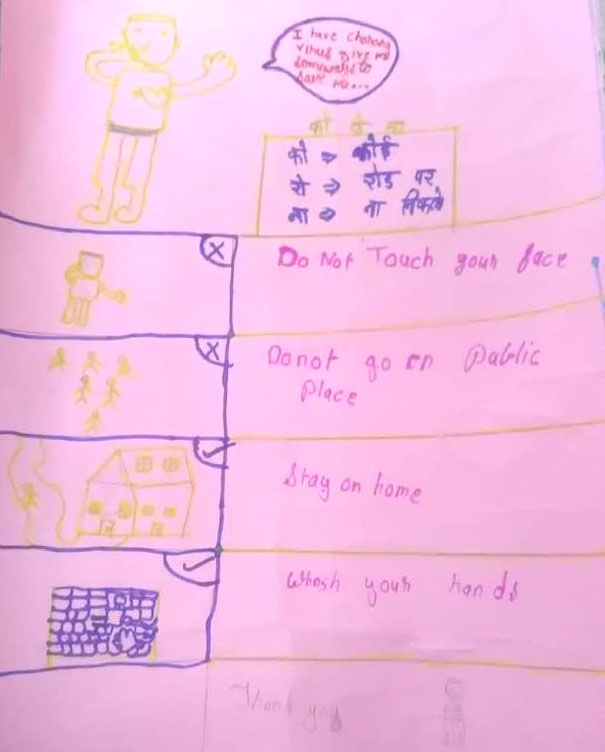 I have chohona
virus give me
somewahs to
save me...
को रो ना
को ⇒ कोई
रो ⇒ रोड पर
ना ⇒ ना निकले
Do Not Touch your face
Do not go on Public
Place
Stay on home
Whosh your hands
Thank you